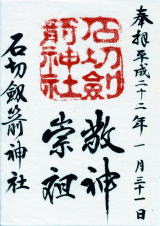 奉拝平成二十二年一月三十一日
石切劔
箭神社
敬神
崇祖
石切劔箭神社